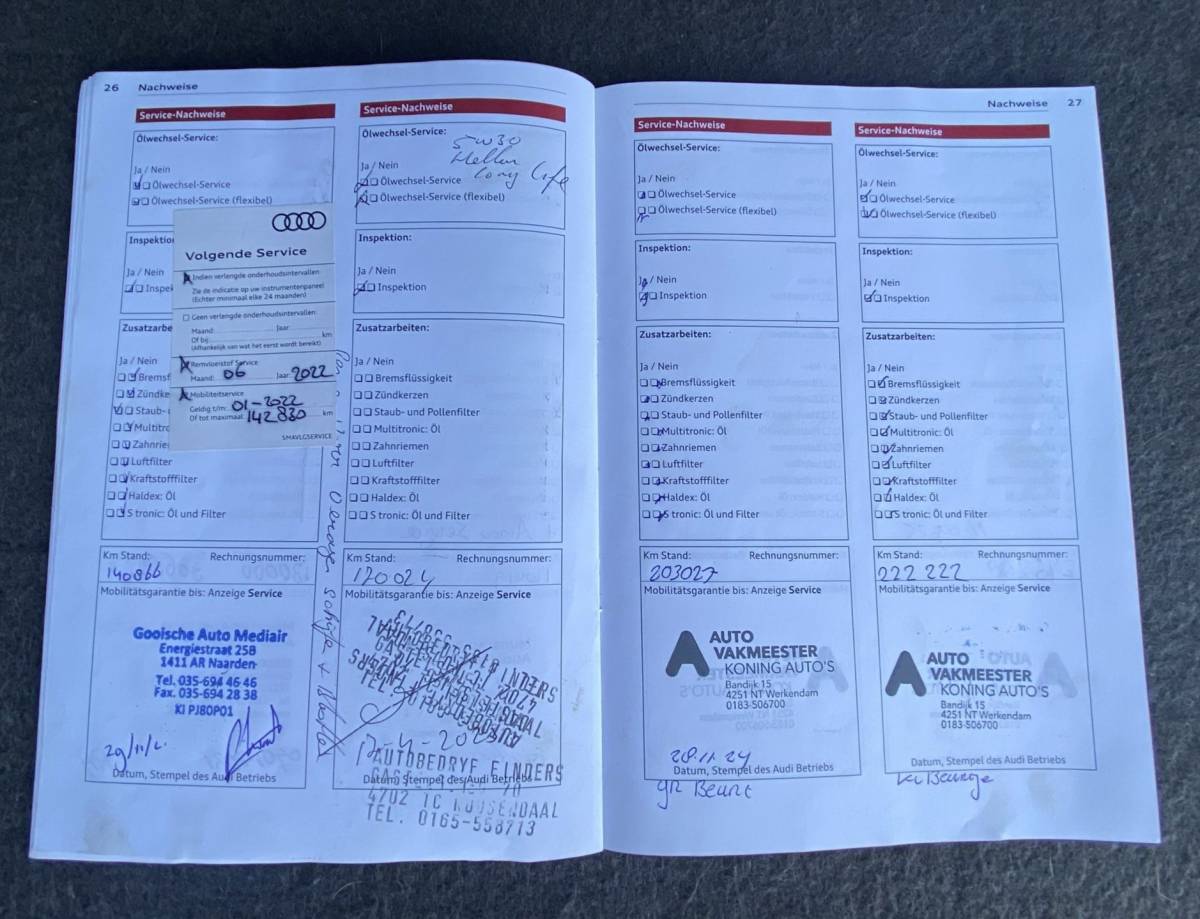 26 Nachweise
Service-Nachweise
Ölwechsel-Service:
Ja / Nein
Ölwechsel-Service
Ölwechsel-Service (flexibel)
Inspektion
Ja / Nein
Zusatzarbeiten:
Ja / Nein
Zündkerzen
Luftfilter
Kraftstofffilter
Haldex: Öl
S tronic: Öl und Filter
Km Stand: Rechnungsnummer:
140866
Mobilitätsgarantie bis: Anzeige Service
Gooische Auto Mediair
Energiestraat 25B
1411 AR Naarden
Tel. 035-694 46 46
Fax. 035-694 28 38
KI PJ80P01
Datum, Stempel des Audi Betriebs
Volgende Service
Indien verlengde onderhoudsintervallen:
Zie de indicatie op uw instrumentenpaneel
(Echter minimaal elke 24 maanden)
Geen verlengde onderhoudsintervallen:
Maand: Jaar:
Of bij: km
(Afhankelijk van wat het eerst wordt bereikt)
Remvloeistof Service
Maand: 06 Jaar: 2022
Mobiliteitservice
Geldig t/m: 01-2022
Of tot maximaal: 142.830 km
SMAVLGSERVICE
Service-Nachweise
Ölwechsel-Service:
5W30
Long Life
Ja / Nein
Ölwechsel-Service
Ölwechsel-Service (flexibel)
Inspektion:
Ja / Nein
Inspektion
Zusatzarbeiten:
Ja / Nein
Bremsflüssigkeit
Zündkerzen
Staub- und Pollenfilter
Multitronic: Öl
Zahnriemen
Luftfilter
Kraftstofffilter
Haldex: Öl
S tronic: Öl und Filter
Km Stand: Rechnungsnummer:
170024
Mobilitätsgarantie bis: Anzeige Service
AUTOBEDRYF FINDERS
Datum, Stempel des Audi Betriebs
4702 TC ROOSENDAAL
TEL. 0165-558713
Nachweise 27
Service-Nachweise
Ölwechsel-Service:
Ja / Nein
Ölwechsel-Service
Ölwechsel-Service (flexibel)
Inspektion:
Ja / Nein
Inspektion
Zusatzarbeiten:
Ja / Nein
Bremsflüssigkeit
Zündkerzen
Staub- und Pollenfilter
Multitronic: Öl
Zahnriemen
Luftfilter
Kraftstofffilter
Haldex: Öl
S tronic: Öl und Filter
Km Stand: Rechnungsnummer:
203027
Mobilitätsgarantie bis: Anzeige Service
AUTO
VAKMEESTER
KONING AUTO'S
Bandijk 15
4251 NT Werkendam
0183-506700
28.11.24
Datum, Stempel des Audi Betriebs
gr Beurt
Service-Nachweise
Ölwechsel-Service:
Ja / Nein
Ölwechsel-Service
Ölwechsel-Service (flexibel)
Inspektion:
Ja / Nein
Inspektion
Zusatzarbeiten:
Ja / Nein
Bremsflüssigkeit
Zündkerzen
Staub- und Pollenfilter
Multitronic: Öl
Zahnriemen
Luftfilter
Kraftstofffilter
Haldex: Öl
S tronic: Öl und Filter
Km Stand: Rechnungsnummer:
222 222
Mobilitätsgarantie bis: Anzeige Service
AUTO
VAKMEESTER
KONING AUTO'S
Bandijk 15
4251 NT Werkendam
0183-506700
Datum, Stempel des Audi Betriebs